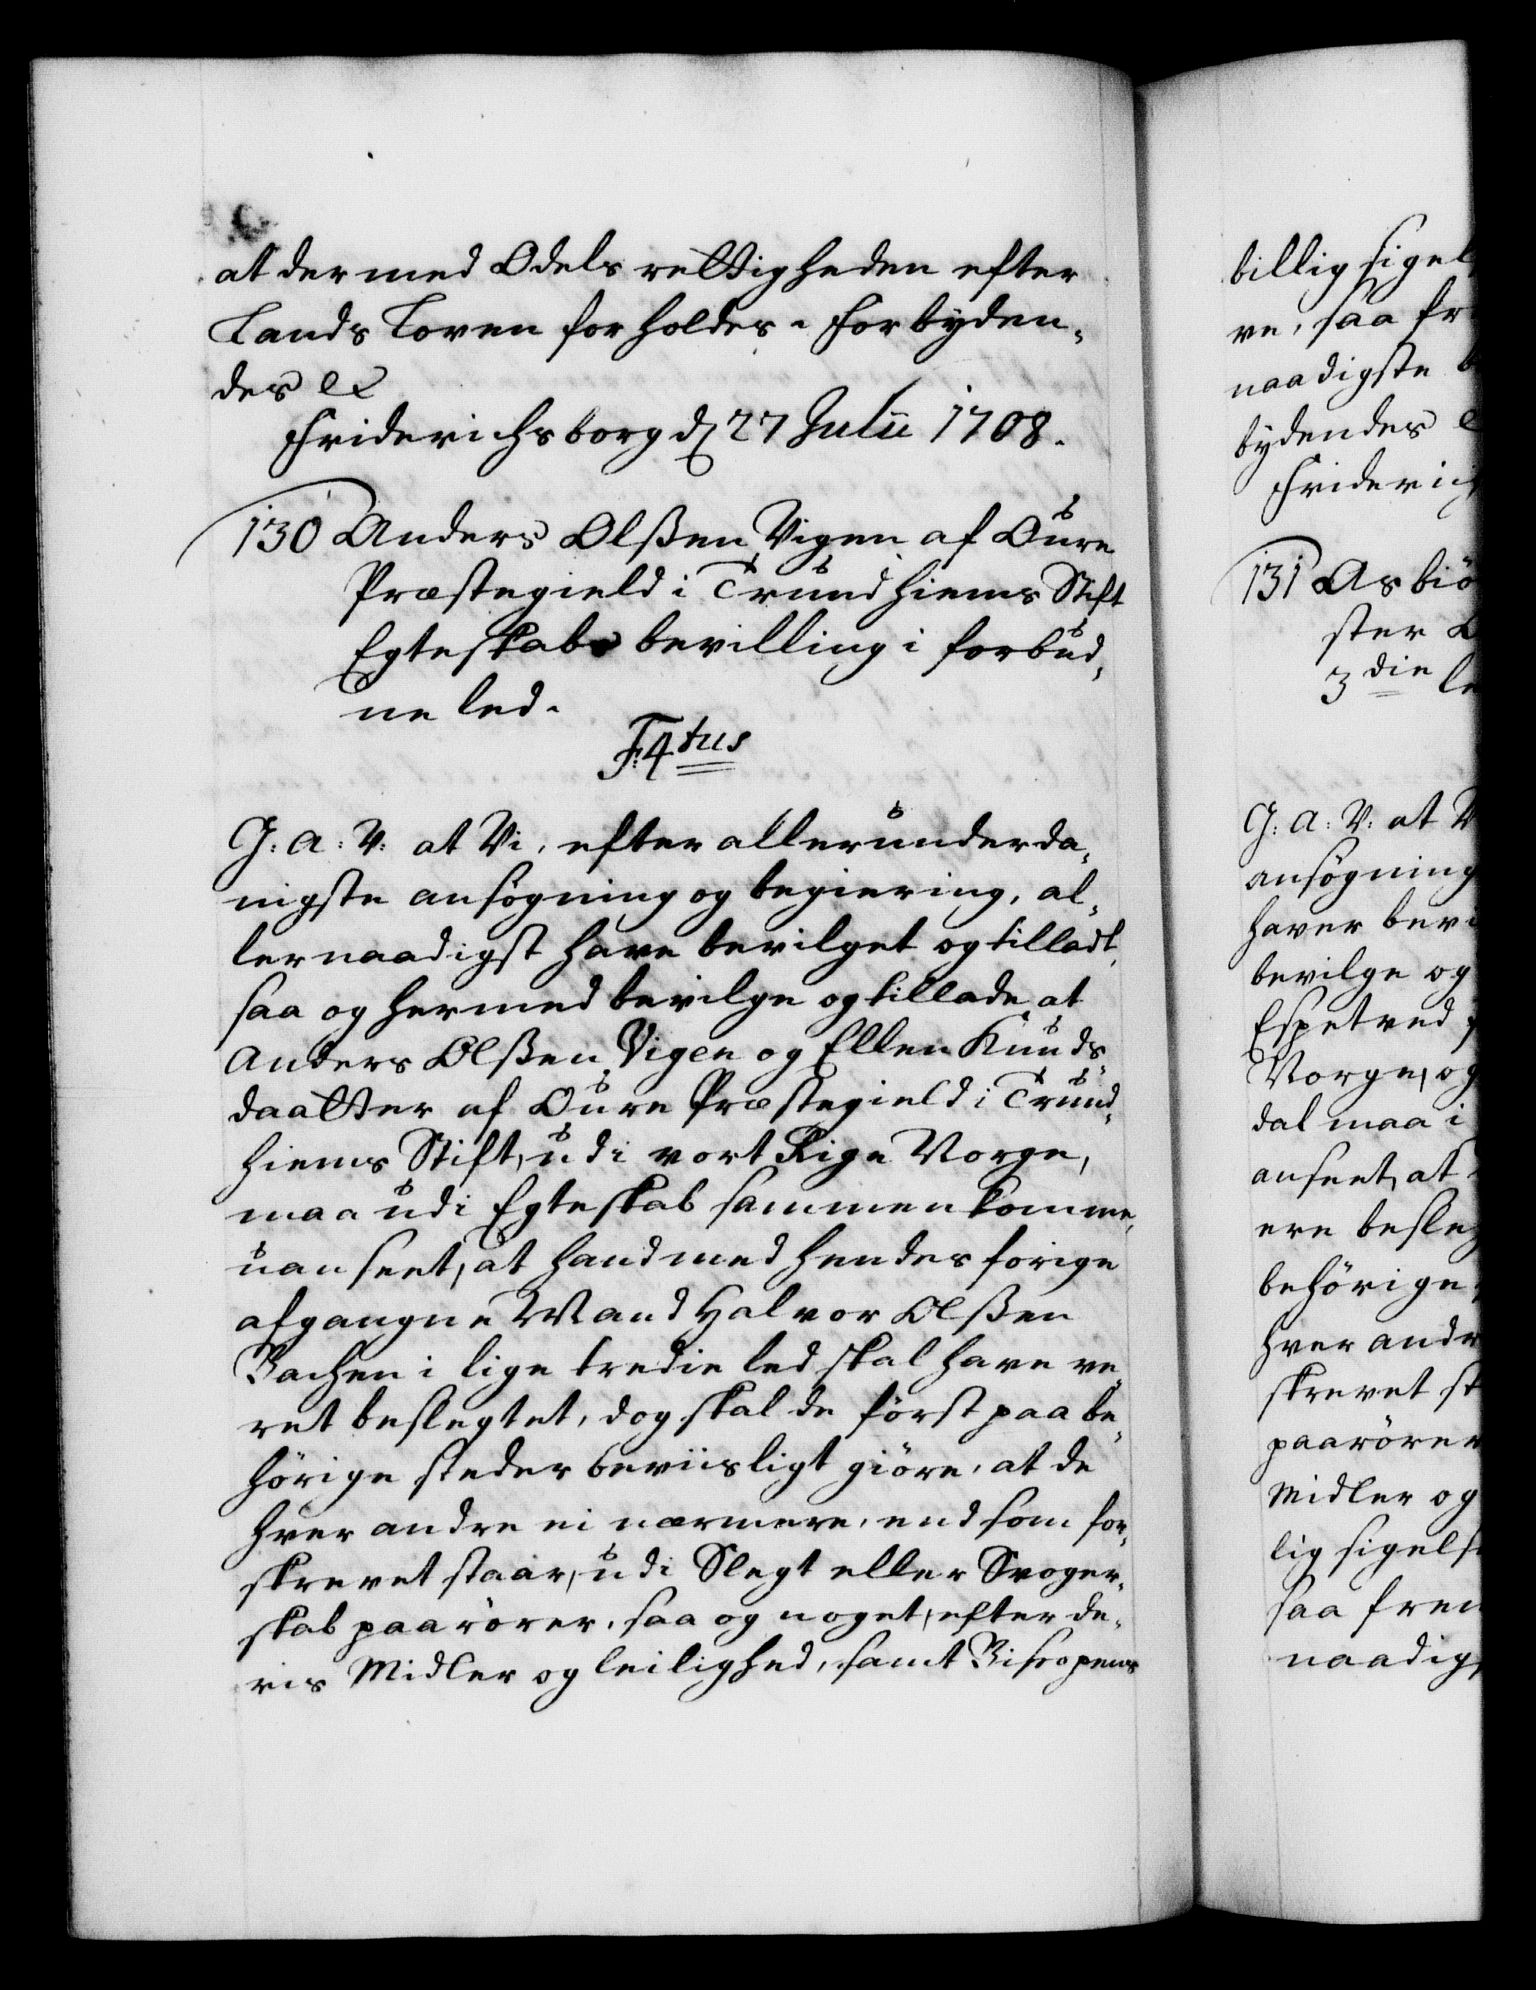 at der med Odels rettigheden efter
Lands Loven forholdes. Forbyden-
des &c
Friderichsborg d 27 Julii 1708.
130 Anders Olßen Vigen af Oure
Præstegield i Trundhiems Stift
Egteskabs bevilling i forbud-
ne led.
F: 4tus
G: A: V: at Vi, efter allerunderda-
nigste ansøgning og begiering, al-
lernaadigst have bevilget og tilladt,
saa og hermed bevilge og tillade at
Anders Olßen Vigen og Ellen Knuds
daatter af Oure Præstegield i Trund-
hiems Stift, udi vort Rige Norge,
maa udi Egteskab sammenkomme,
uanseet, at hand med hendes forige
afgangne Mand Halvor Olßen
Bachen i lige tredie led skal have ve-
ret beslegtet, dog skal de først paa be-
hørige steder beviisligt giøre, at de
hver andre ei nærmere, end som for-
skrevet staar, udi Slegt eller Svoger-
skab paarører, saa og noget, efter de-
ris Midler og leilighed, samt Biscopens
billig sigel
re, saa fr
naadigste b
bydendes
Friderich
131 Asbiø
ster
3die le
G: A: V: at V
ansøgning
haver bevi
bevilge og
Espetved
Norge, og
dal maa i
anseet, at
ere besleg
behørige
hver andr
skrevet st
paarører
Midler og
lig sigels
saa frem
naadig